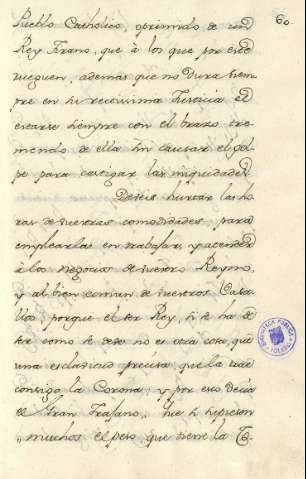 60.
Pueblo Catholico, oprimido de un
Rey Tirano, que à los que por este
rueguen, ademas que no dura siem-
pre en su rectissima Justicia el
estarse siempre con el brazo tre-
mendo de ella sin causar el gol-
pe para castigar las iniquidades.
Deveis hurtar las ho-
ras de vuestras comodidades, para
emplearlas en trabajar, y atender
à los negocios de vuestro Reyno,
y al bien comun de vuestros Vasa-
llos, porque el ser Rey, si se ha de
ser como se deve no es otra cosa, que
una esclavitud precisa que la trae
consigo la Corona; y por esso decia
el Gran Trajano, que si supiesen
muchos el peso, que tiene la Co-
BIBLIOTECA PUBLICA
TOLEDO